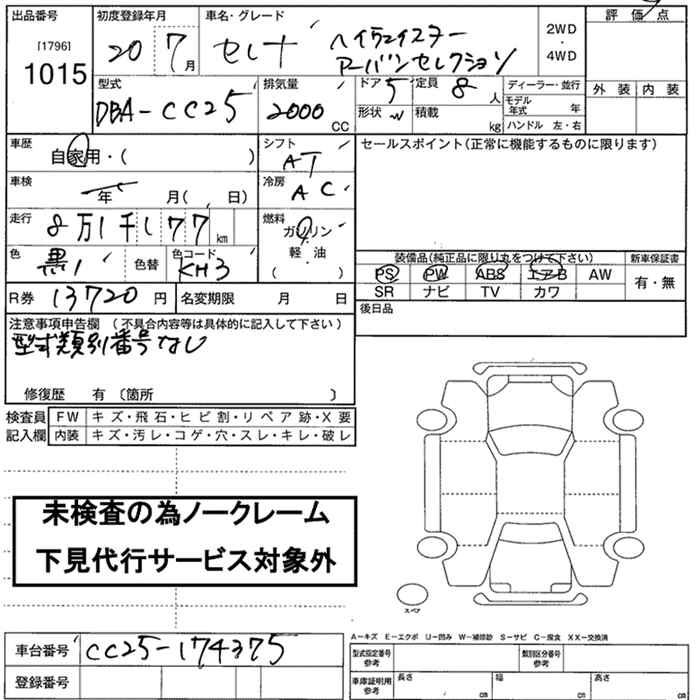 出品番号 初度登録年月 車名・グレード 評価点
[1796] 1015 20 7月 セレナ ハイウェイスター アーバンセレクション 2WD・4WD
型式 排気量 ドア 5 定員 8人 ディーラー・並行 外装 内装
DBA-CC25 2000 CC 形状 W 積載 kg モデル年式 年
ハンドル 左・右
車歴 自家用・( ) シフト AT セールスポイント(正常に機能するものに限ります)
車検 年 月( 日) 冷房 AC
走行 8万1千177km 燃料 ガソリン
軽・油
( )
色 黒 色替 色コード KH3 装備品(純正品に限り丸をつけて下さい) 新車保証書
PS PW ABS エアB AW 有・無
SR ナビ TV カワ
R券 13720円 名変期限 月 日 後日品
注意事項申告欄 (不具合内容等は具体的に記入して下さい)
型式類別番号なし
修復歴 有 〔箇所 〕
検査員 FW キズ・飛石・ヒビ割・リペア跡・X要
記入欄 内装 キズ・汚レ・コゲ・穴・スレ・キレ・破レ
未検査の為ノークレーム
下見代行サービス対象外
スペア
車台番号 CC25-174375 A-キズ E-エクボ U-凹み W-補修跡 S-サビ C-腐食 XX-交換済
型式指定番号 参考 類別区分番号 参考
登録番号 車庫証明用 参考 長さ cm 幅 cm 高さ cm